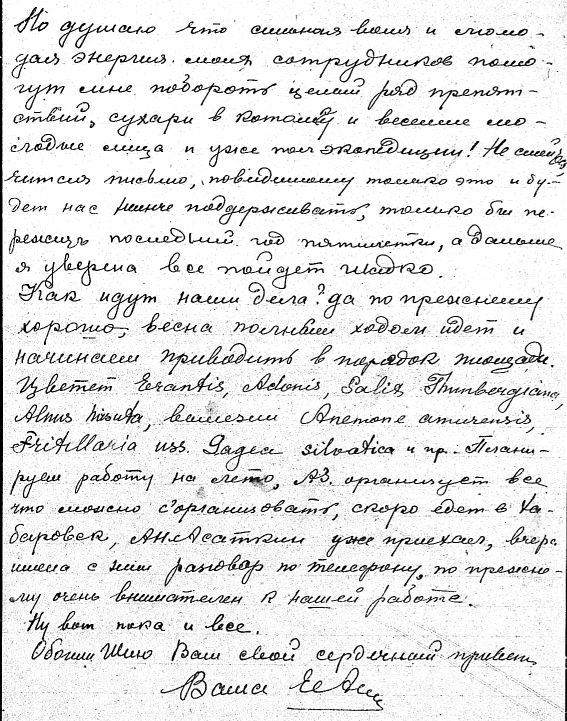 Но думаю что сильная воля и моло-
дая энергия моих сотрудников помо-
гут мне побороть целый ряд препят-
ствий, сухари в котомку и веселые мо-
лодые лица и уже пол экспедиции! Не
чится письмо, повидимому только это и бу-
дет нас нынче поддерживать, только бы пе-
режить последний год пятилетки, а дальше
я уверена все пойдет гладко.
Как идут наши дела? да по прежнему
хорошо, весна полным ходом идет и
начинаем приводить в порядок площади.
Цветет Erantis, Adonis, Salix Thunbergiana,
Alnus hirsuta, вылезли Anemone amurensis,
Fritillaria uss. Gagea silvatica и пр. Плани-
руем работу на лето, АЗ. организует все
что можно с'организовать, скоро едет в Ха-
баровск, Ан.Асаткин уже приехал, вчера
имела с ним разговор по телефону, по прежне-
му очень внимателен к нашей работе.
Ну вот пока и все.
Обоим Шлю Вам свой сердечный привет
Ваша